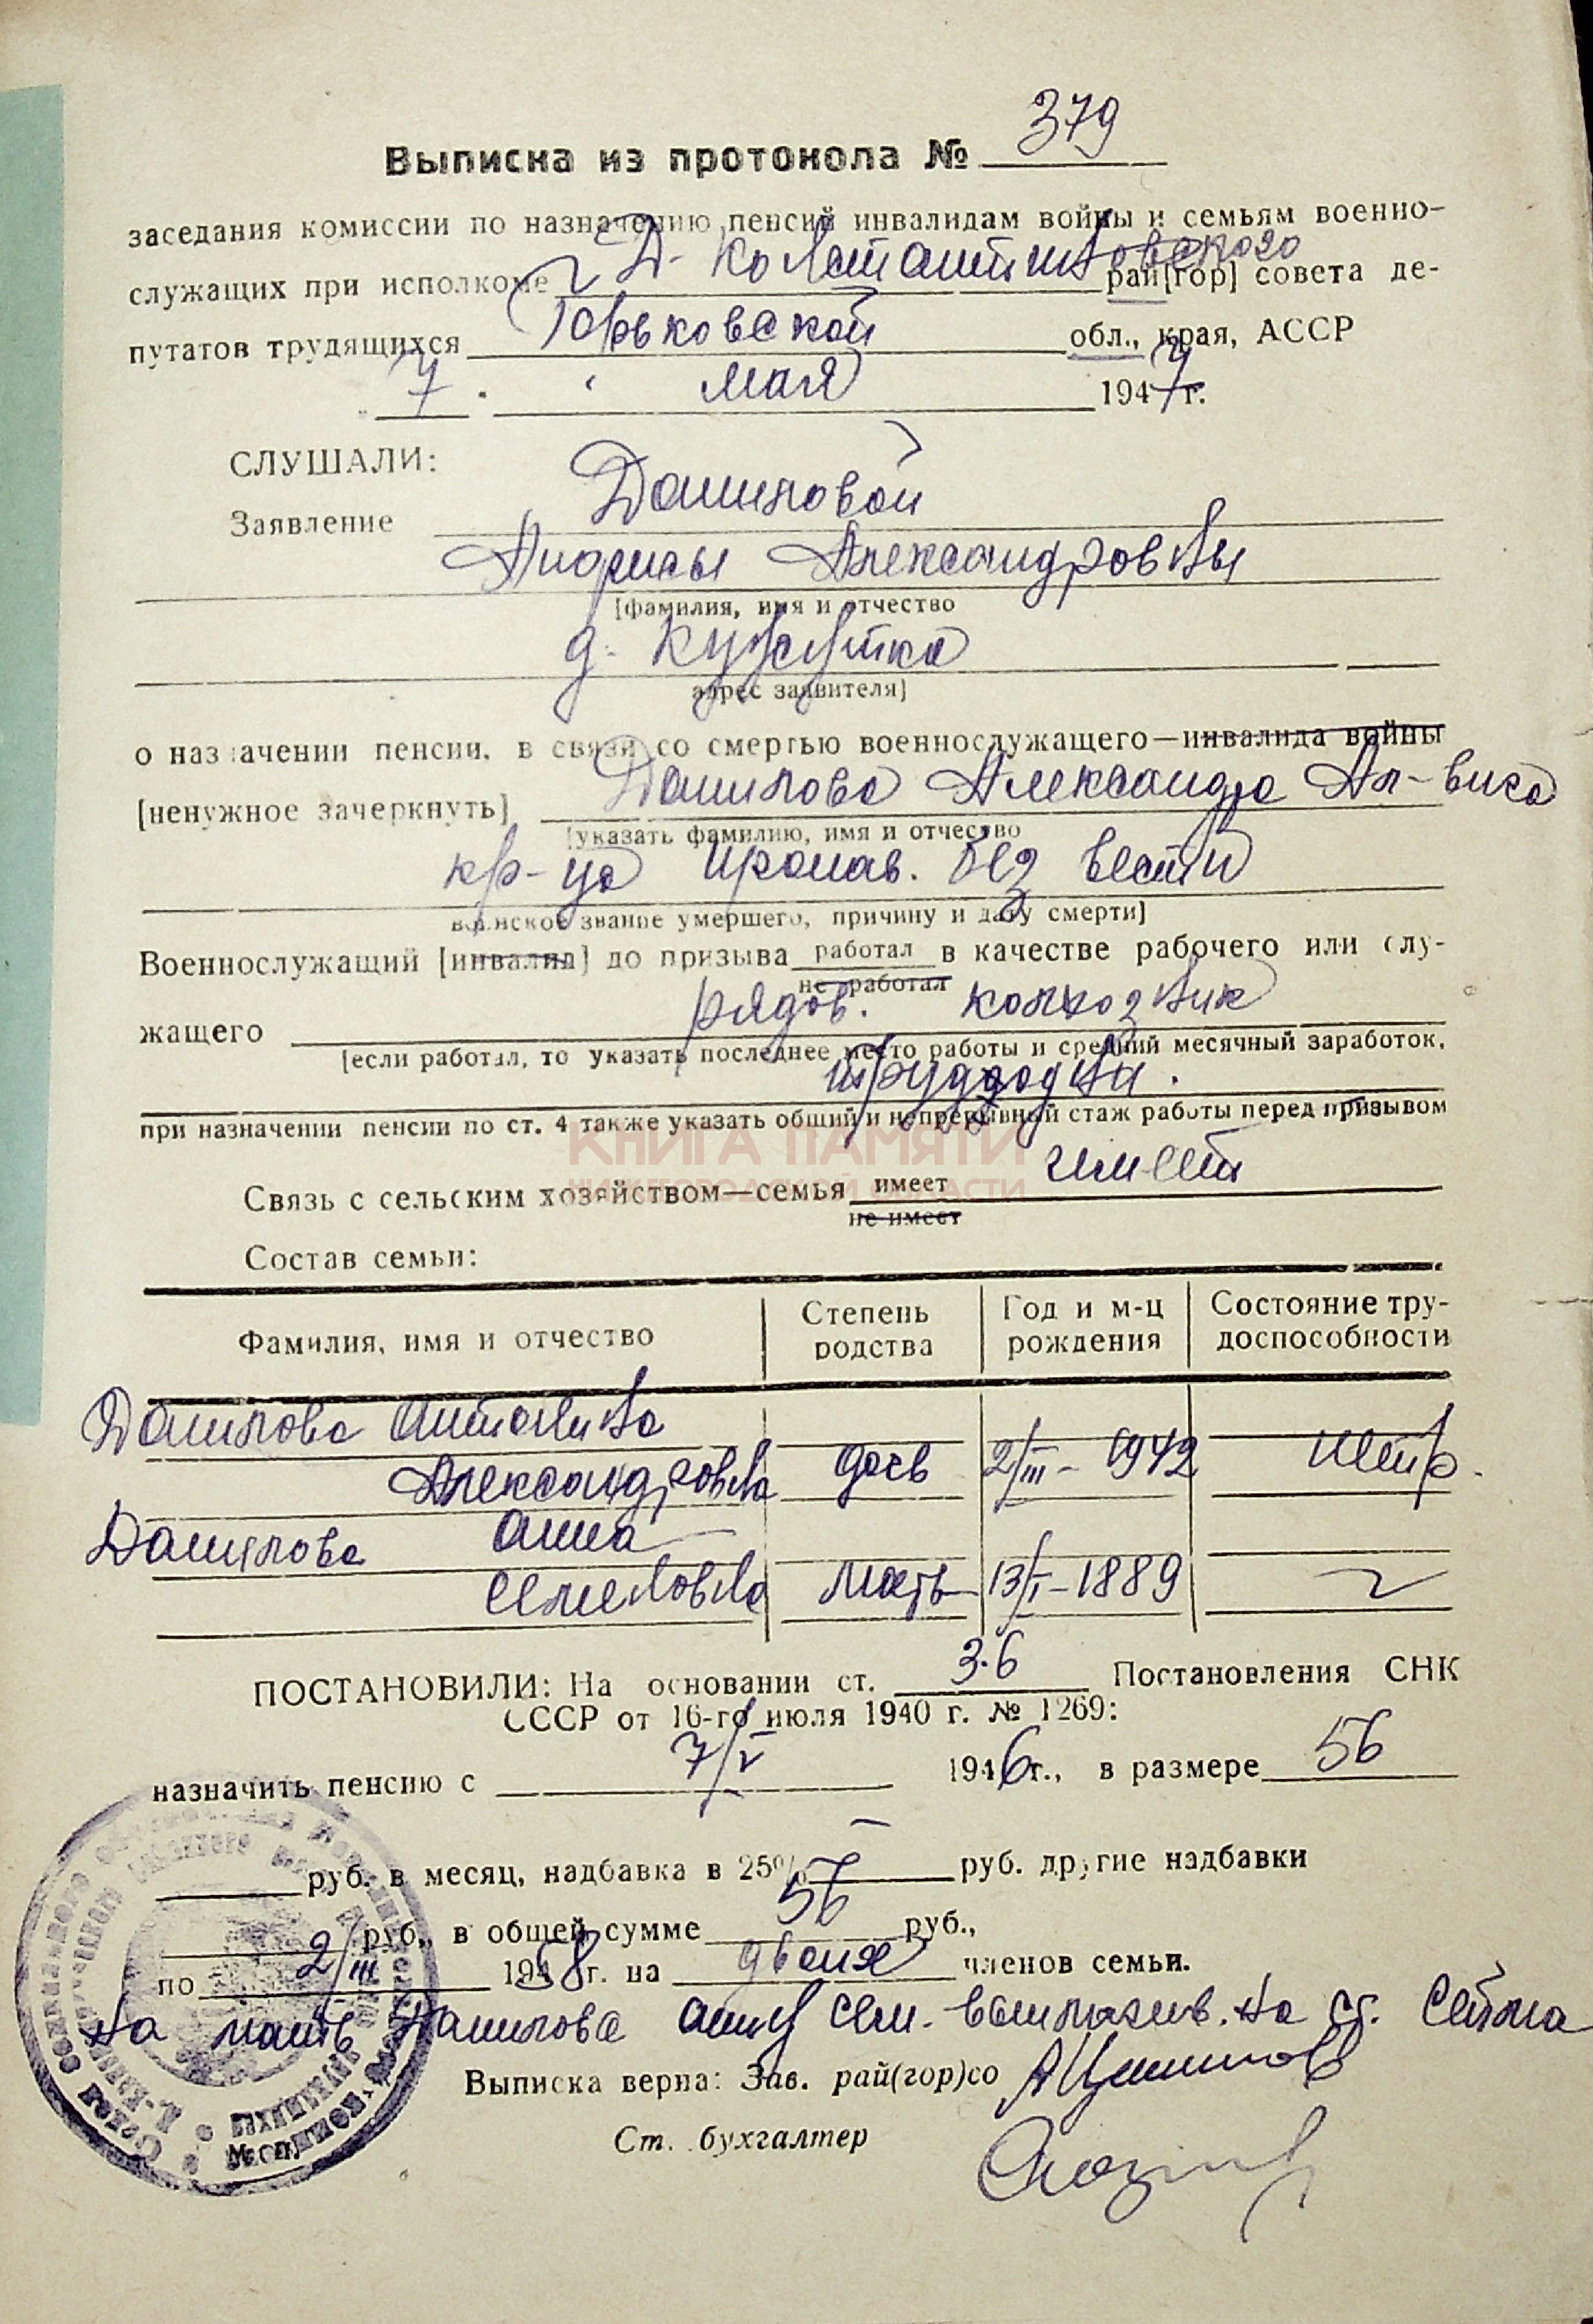 Выписка из протокола № 379
заседания комиссии по назначению пенсий инвалидам войны и семьям военно-
служащих при исполкоме Д-Константиновского рай[гор] совета де-
путатов трудящихся Горьковской обл., края, АССР
7 мая 1947г.
СЛУШАЛИ:
Заявление Даниловой
Анфисы Александровны
[фамилия, имя и отчество
д. Кужутка
адрес заявителя]
о назначении пенсии, в связи со смертью военнослужащего—инвалида войны
[ненужное зачеркнуть] Данилова Александра Ал-вича
[указать фамилию, имя и отчество
кр-ца пропав. без вести
воинское звание умершего, причину и дату смерти]
Военнослужащий [инвалид] до призыва работал в качестве рабочего или слу-
не работал
жащего рядов. колхозник
[если работал, то указать последнее место работы и средний месячный заработок,
трудодни.
при назначении пенсии по ст. 4 также указать общий и непрерывный стаж работы перед призывом
КНИГА ПАМЯТИ
НИЖЕГОРОДСКОЙ ОБЛАСТИ
Связь с сельским хозяйством—семья имеет имеет
не имеет
Состав семьи:
Фамилия, имя и отчество Степень родства Год и м-ц рождения Состояние тру-доспособности
Данилова Антонина
Александровна дочь 2/III-1942 нетр.
Данилова Анна
Семеновна мать 13/I-1889
ПОСТАНОВИЛИ: На основании ст. 3.6 Постановления СНК
СССР от 16-го июля 1940 г. № 1269:
назначить пенсию с 7/V 1946г., в размере 56
руб. в месяц, надбавка в 25% — руб. другие надбавки
руб., в общей сумме 56 руб.,
по 2/III 1958г. на двоих членов семьи.
На мать Данилова Анну Сем. выплачив. на ст. Сейма
Выписка верна: Зав. рай(гор)со
М. П.
Ст. бухгалтер